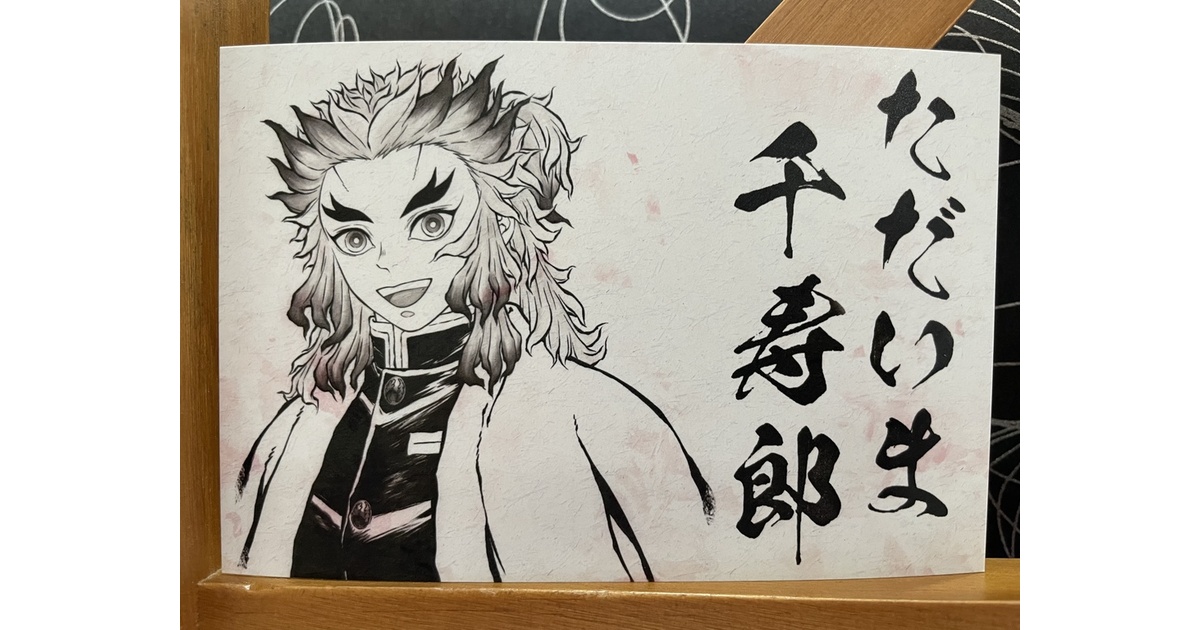 ただいま
千寿郎